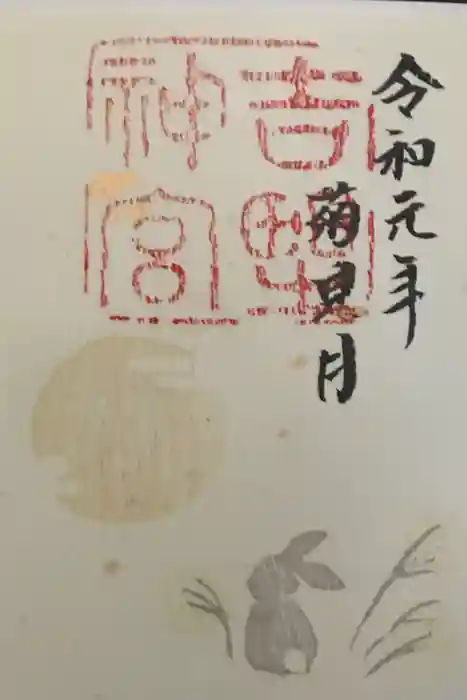 令和元年
菊見月
吉野
神宮